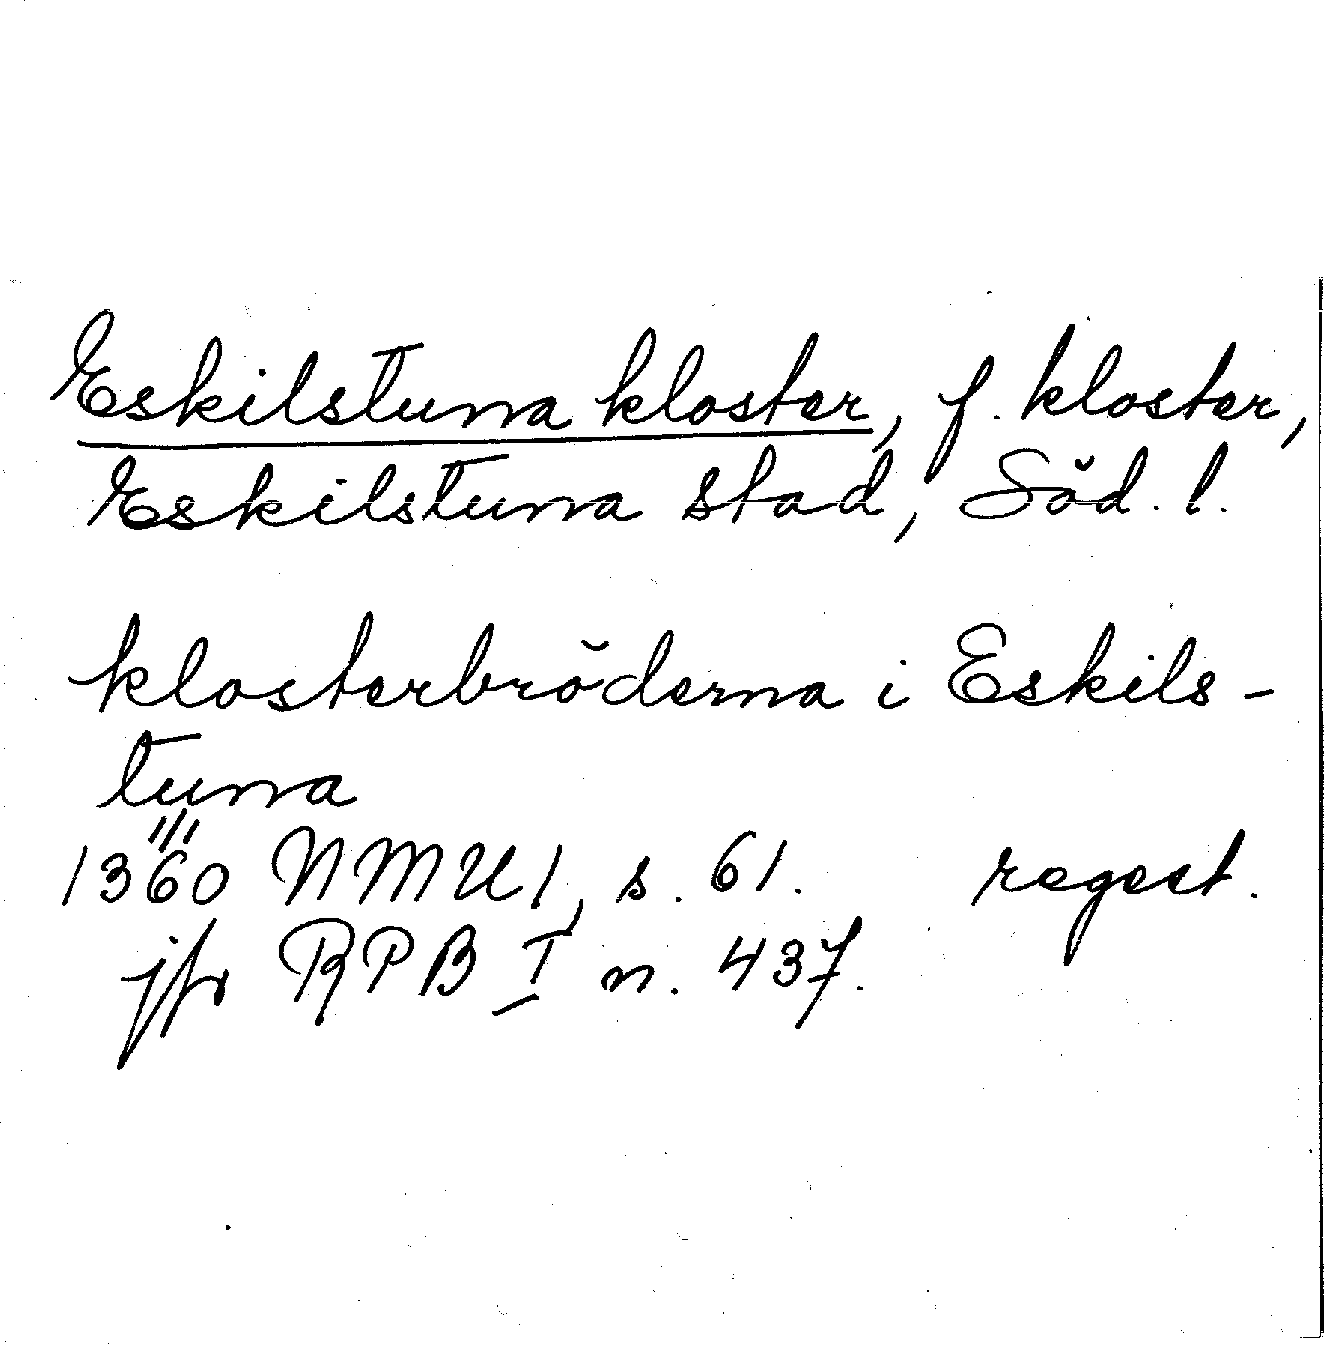 Eskilstuna kloster, f. kloster,
Eskilstuna stad, Söd. l.
klosterbröderna i Eskils-
tuna
1360 NMU 1, s. 61. regest.
jfr RPB I n. 437.